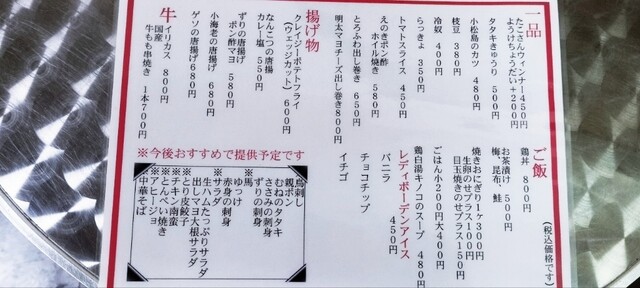 一品
たこさんウィンナー450円
ようけちょうだい+200円
タタキきゅうり 500円
小松島のカツ 480円
枝豆 380円
冷奴 400円
らっきょ 350円
トマトスライス 450円
えのきポン酢
ホイル焼き 580円
とろふわ出し巻き 650円
明太マヨチーズ出し巻き800円
揚げ物
クレイジーポテトフライ
(ウェッジカット) 600円
なんこつの唐揚
カレー塩 550円
ずりの唐揚げ
ポン酢マヨ 580円
小海老の唐揚げ 680円
ゲソの唐揚げ680円
牛
イリカス 800円
国産
牛もも串焼き 1本700円
ご飯
(税込価格です)
鶏丼 800円
お茶漬け 500円
梅、昆布、鮭
焼きおにぎり1ケ300円
生卵のせプラス100円
目玉焼きのせプラス150円
ごはん小200円大400円
鶏白湯キノコのスープ 480円
レディボーデンアイス
450円
バニラ
チョコチップ
イチゴ
※今後おすすめで提供予定です
鳥刺し
親ポン
むねのタタキ
ささみの刺身
ずりの刺身
※馬
赤身の刺身
ゆっけ
※サラダ
生ハムたっぷりサラダ
出汁マヨ大根サラダ
※とり皮餃子
※チキン南蛮
※とんぺい焼き
※アヒージョ
※中華そば